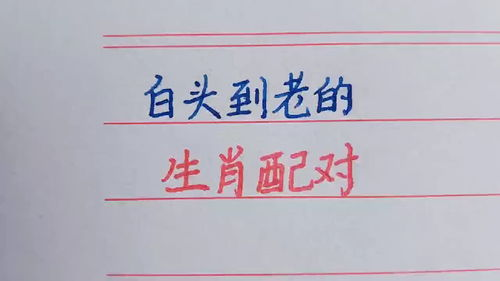 白头到老的
生肖配对